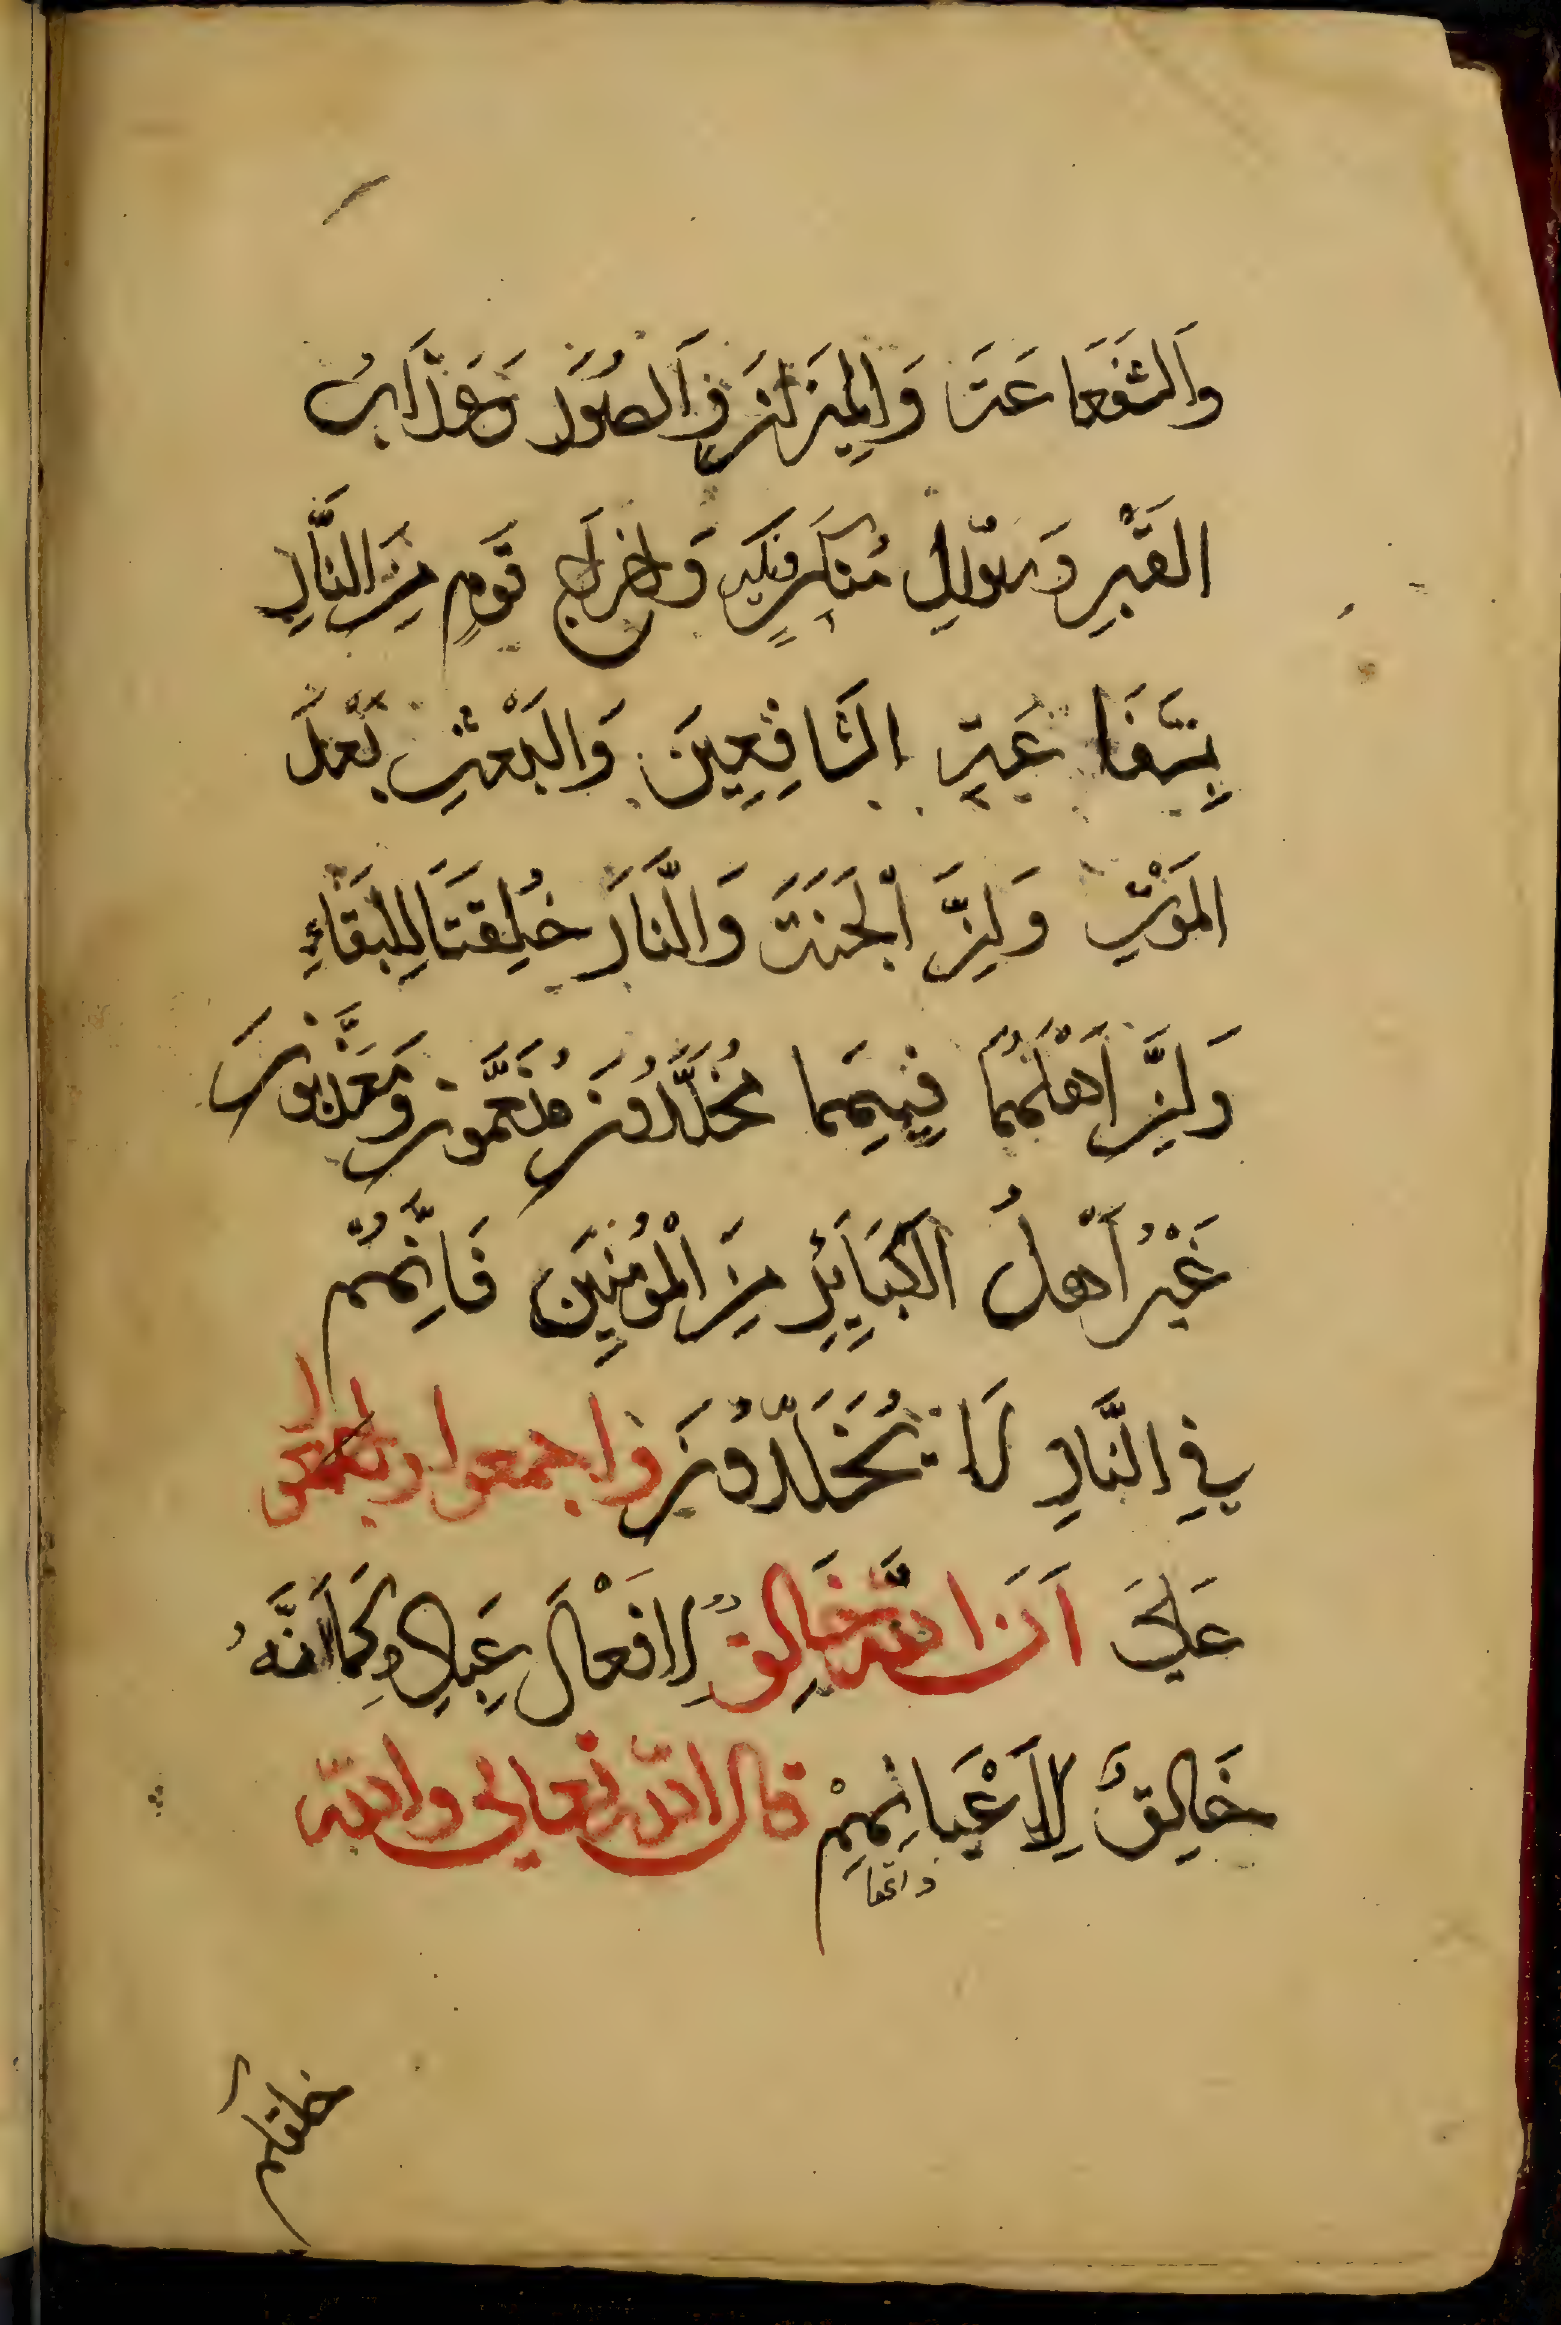 وَالشَفَعَاعَتَ وَالمِيَزانَ وَالصُوَرَ وَعَذَابَ
القَبْرِ وَسُوّالِ مُنكَرٍ ونكير وَاِخرَاج قَومٍ مِنَ النَّارِ
بِشَفَاعَتِ الشَافِعِينَ وَالبَعْثِ بَعْدَ
المَوْتِ وَاِنَّ اْلجَنَتَ وَالنَّارَ خُلِقَتَا لِلبَقَاءِ
وَاِنَّ اَهْلَهُمَا فِيهِمَا مُخَلَّدُونَ مُنَعَّمُونَ وَمُعَذَّبُونَ
غَيْرُ اَهْلُ الكَبَايِرِ مِنَ اْلمُؤمِنِينَ فَاِنَّهُمْ
فِي النَّارِ لَا يُخَلَّدُونَ واجمعوا
عَلَى اَنَ اللّٰهَ خَالِقٌ لِافْعَالَ عِبَادِ كَمَا اَنَّهُ
خَالِقٌ لِاَعْيَانِهِمْ قال اللّٰه تعالى واللّٰه
خلقكم